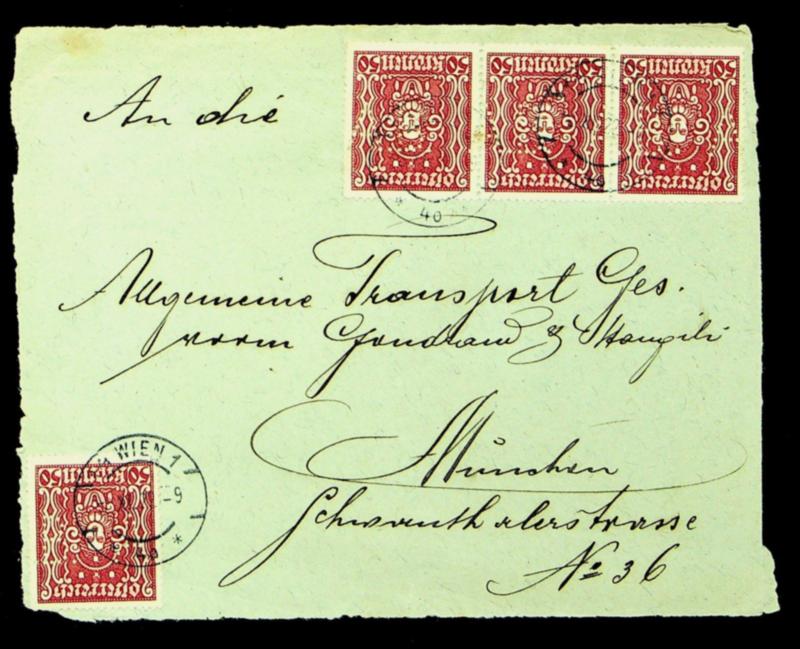 50 Kronen 50
50 Kronen 50
50 Kronen 50
Österreich
Österreich
Österreich
40
An die
Allgemeine Transport Ges.
vorm Gondrand & Mangili
München
Schwanthalerstrasse
No 36
WIEN 1
9
50 Kronen 50
Österreich